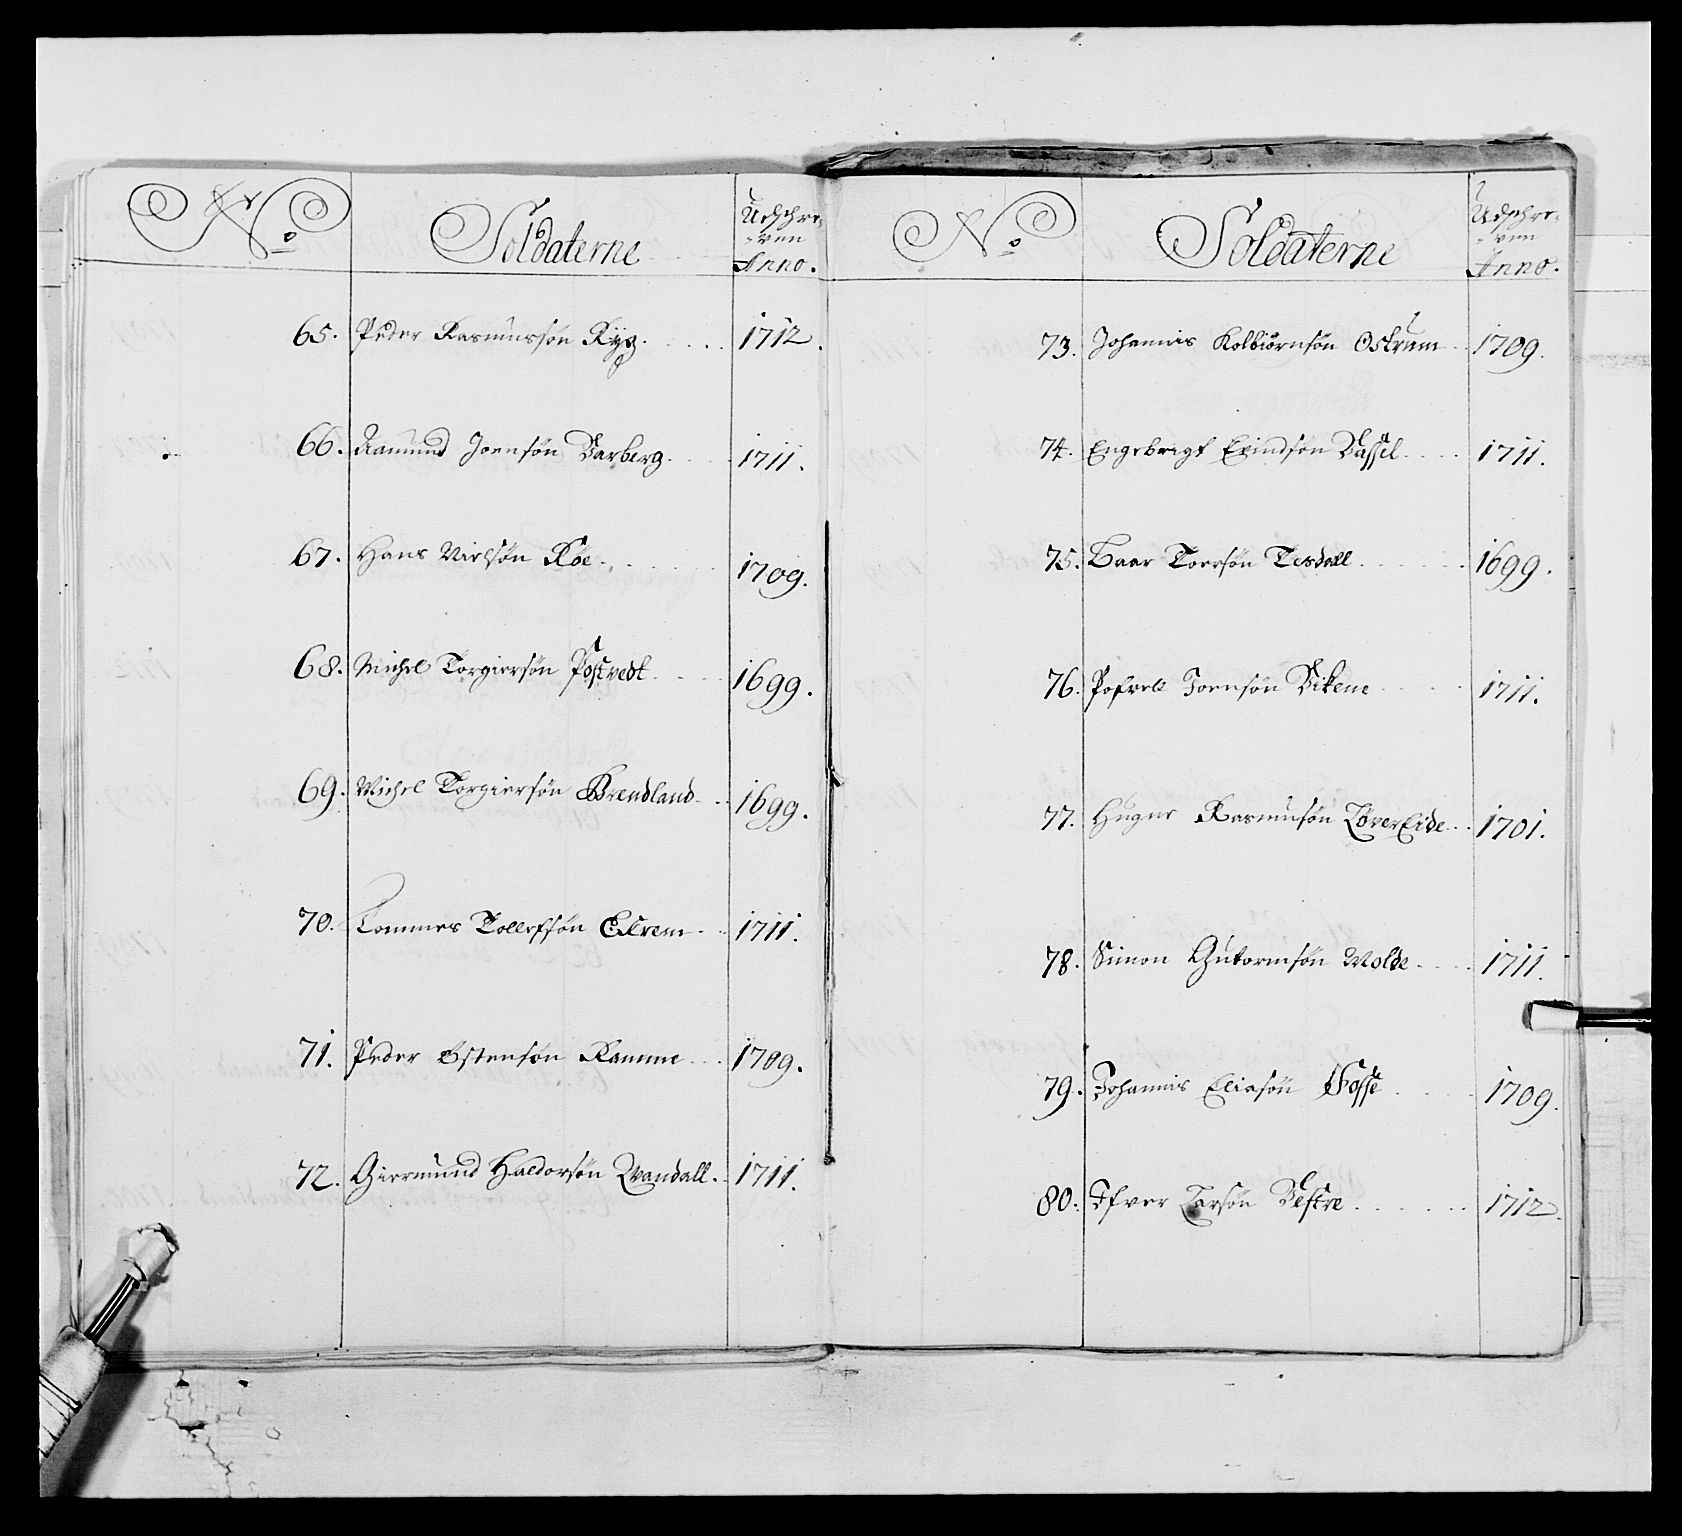 No Soldaterne Udschre-
-ven
Anno.
65. Peder Rasmussøn Ryg. 1712.
66. Aamund Joensøn Varberg. 1711.
67. Hans Nirsøn Røe. 1709.
68. Michel Torgiersøn Postvedt. 1699.
69. Michel Torgiersøn Brendland. 1699.
70. Tommes Tollefsøn Elvem. 1711.
71. Peder Østensøn Ramme. 1709.
72. Giermund Haldorsøn Wandall. 1711.
No Soldaterne Udschre-
-ven
Anno.
73. Johannis Kolbiørnsøn Ostrum 1709.
74. Engebrigt Evindsøn Dassel. 1711.
75. Baar Torrsøn Tesdall. 1699.
76. Joensøn Vikene 1711.
77. Rasmusøn LøverEide. 1701.
78. Simon Gutormsøn Molde. 1711.
79. Johannis Eliasøn Fosse 1709.
80. Ifver Larsøn Vestre. 1712.